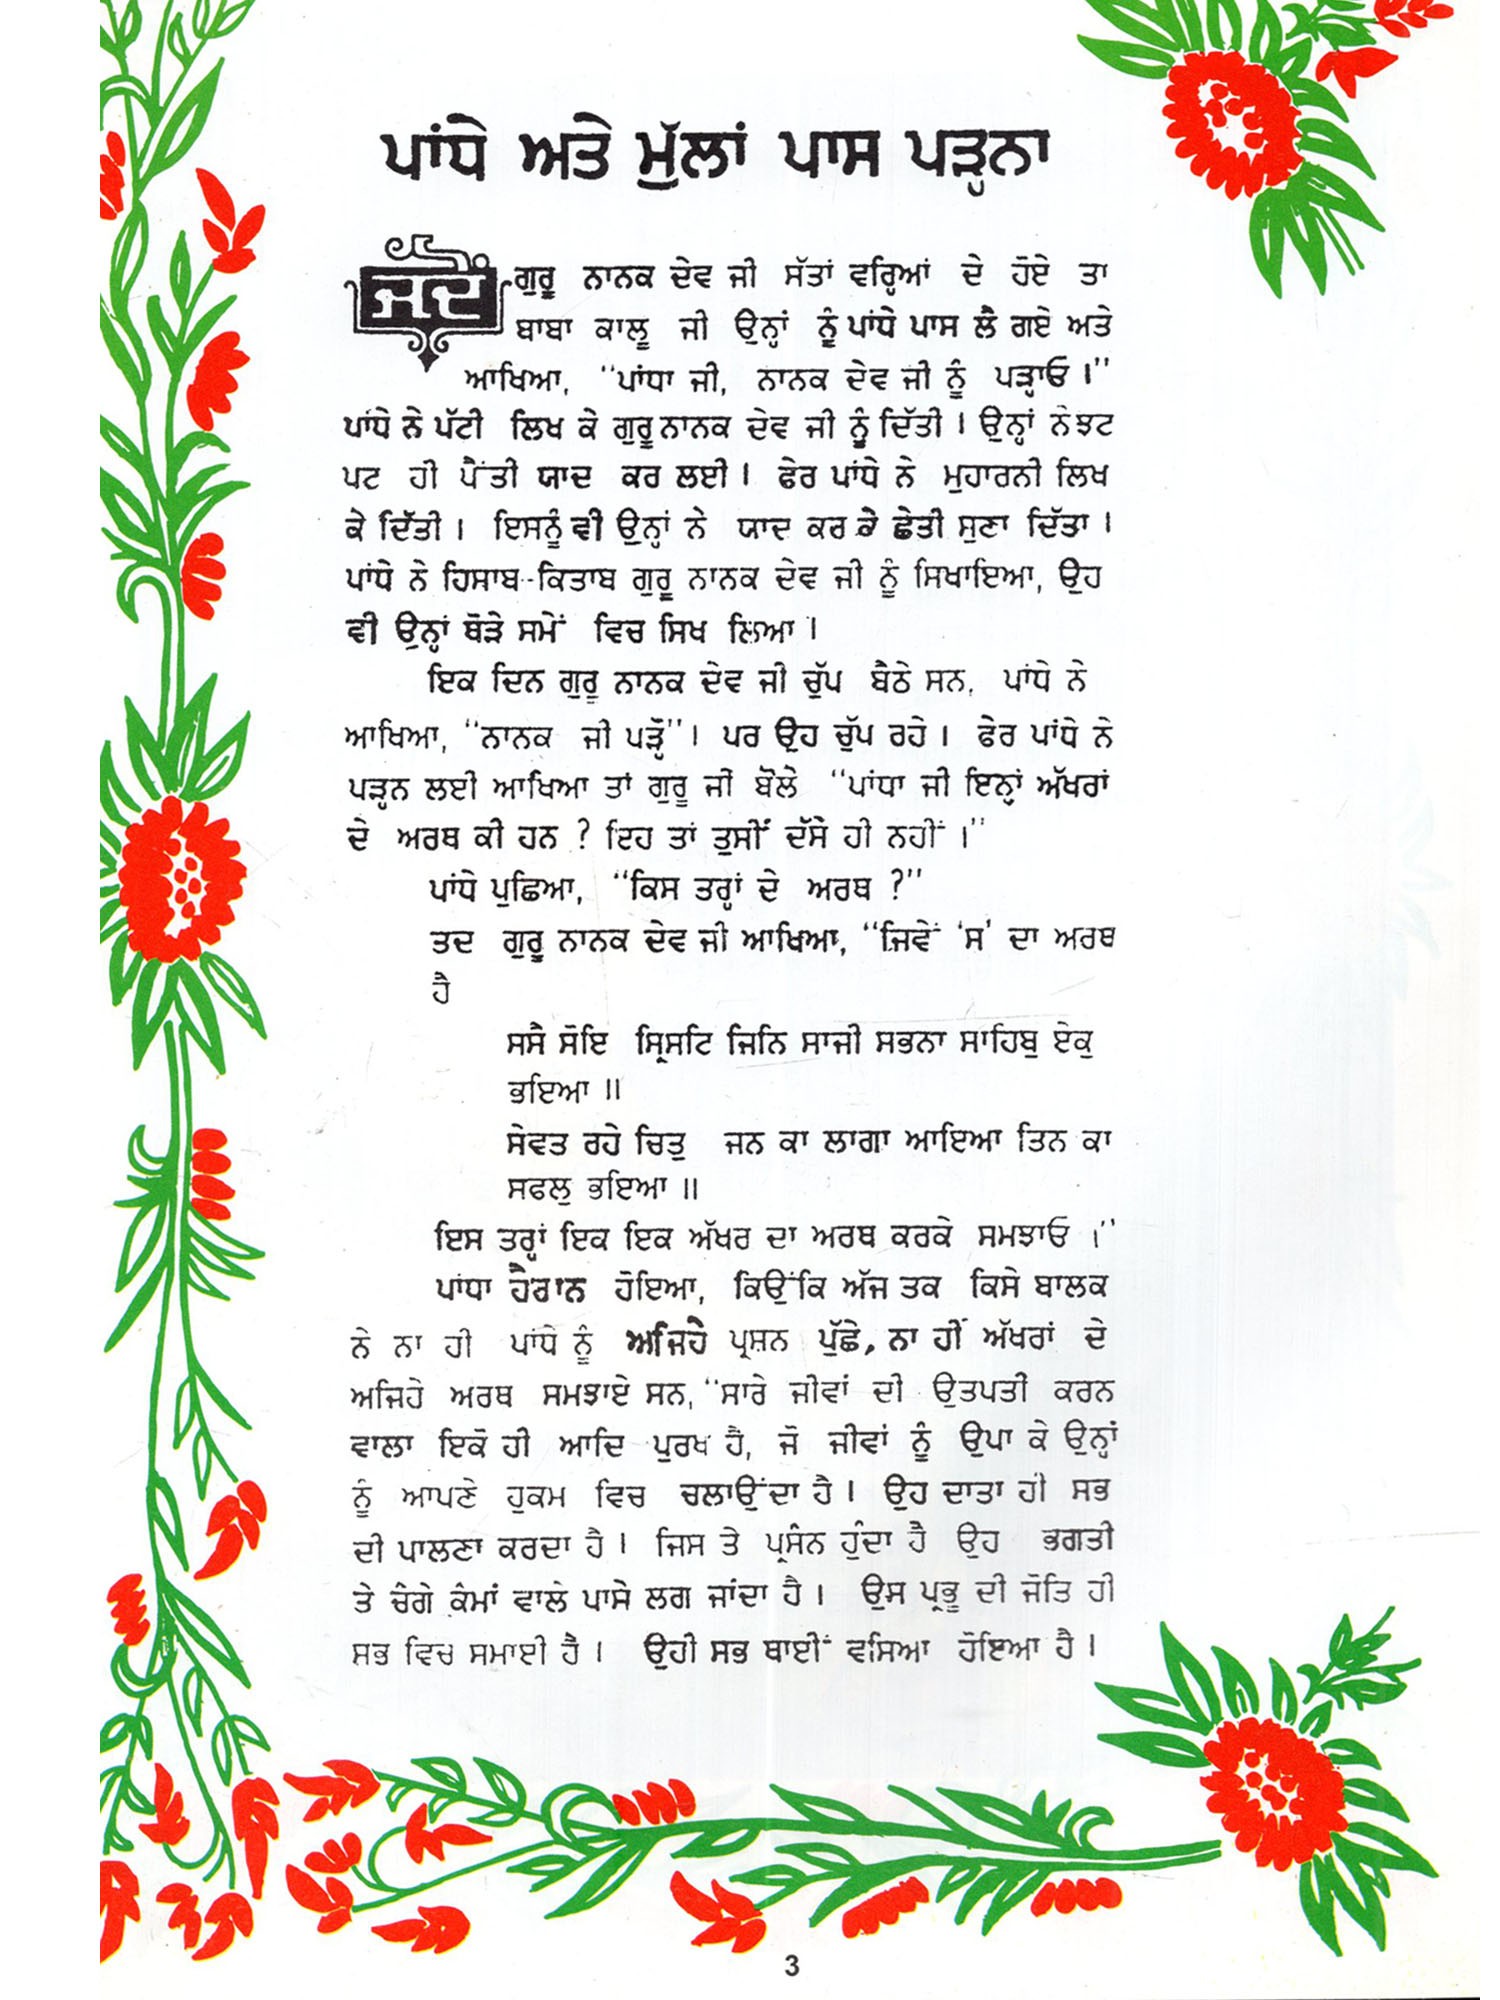 ਪਾਂਧੇ ਅਤੇ ਮੁੱਲਾਂ ਪਾਸ ਪੜ੍ਹਨਾ
ਜਦੋਂ ਗੁਰੂ ਨਾਨਕ ਦੇਵ ਜੀ ਸੱਤਾਂ ਵਰ੍ਹਿਆਂ ਦੇ ਹੋਏ ਤਾ
ਬਾਬਾ ਕਾਲੂ ਜੀ ਉਨ੍ਹਾਂ ਨੂੰ ਪਾਂਧੇ ਪਾਸ ਲੈ ਗਏ ਅਤੇ
ਆਖਿਆ, "ਪਾਂਧਾ ਜੀ, ਨਾਨਕ ਦੇਵ ਜੀ ਨੂੰ ਪੜ੍ਹਾਓ ।"
ਪਾਂਧੇ ਨੇ ਪੱਟੀ ਲਿਖ ਕੇ ਗੁਰੂ ਨਾਨਕ ਦੇਵ ਜੀ ਨੂੰ ਦਿੱਤੀ । ਉਨ੍ਹਾਂ ਨੇ ਝਟ
ਪਟ ਹੀ ਪੈਂਤੀ ਯਾਦ ਕਰ ਲਈ । ਫੇਰ ਪਾਂਧੇ ਨੇ ਮੁਹਾਰਨੀ ਲਿਖ
ਕੇ ਦਿੱਤੀ । ਇਸਨੂੰ ਵੀ ਉਨ੍ਹਾਂ ਨੇ ਯਾਦ ਕਰ ਕੇ ਛੇਤੀ ਸੁਣਾ ਦਿੱਤਾ ।
ਪਾਂਧੇ ਨੇ ਹਿਸਾਬ-ਕਿਤਾਬ ਗੁਰੂ ਨਾਨਕ ਦੇਵ ਜੀ ਨੂੰ ਸਿਖਾਇਆ, ਉਹ
ਵੀ ਉਨ੍ਹਾਂ ਥੋੜੇ ਸਮੇਂ ਵਿਚ ਸਿਖ ਲਿਆ ।
ਇਕ ਦਿਨ ਗੁਰੂ ਨਾਨਕ ਦੇਵ ਜੀ ਚੁੱਪ ਬੈਠੇ ਸਨ, ਪਾਂਧੇ ਨੇ
ਆਖਿਆ, "ਨਾਨਕ ਜੀ ਪੜ੍ਹੋ" । ਪਰ ਉਹ ਚੁੱਪ ਰਹੇ । ਫੇਰ ਪਾਂਧੇ ਨੇ
ਪੜ੍ਹਨ ਲਈ ਆਖਿਆ ਤਾਂ ਗੁਰੂ ਜੀ ਬੋਲੇ "ਪਾਂਧਾ ਜੀ ਇਨ੍ਹਾਂ ਅੱਖਰਾਂ
ਦੇ ਅਰਥ ਕੀ ਹਨ ? ਇਹ ਤਾਂ ਤੁਸੀਂ ਦੱਸੇ ਹੀ ਨਹੀਂ ।"
ਪਾਂਧੇ ਪੁਛਿਆ, "ਕਿਸ ਤਰ੍ਹਾਂ ਦੇ ਅਰਥ ?"
ਤਦ ਗੁਰੂ ਨਾਨਕ ਦੇਵ ਜੀ ਆਖਿਆ, "ਜਿਵੇਂ 'ਸ' ਦਾ ਅਰਥ
ਹੈ
ਸਸੈ ਸੋਇ ਸ੍ਰਿਸਟਿ ਜਿਨਿ ਸਾਜੀ ਸਭਨਾ ਸਾਹਿਬੁ ਏਕੁ
ਭਇਆ ॥
ਸੇਵਤ ਰਹੇ ਚਿਤੁ ਜਨ ਕਾ ਲਾਗਾ ਆਇਆ ਤਿਨ ਕਾ
ਸਫਲੁ ਭਇਆ ॥
ਇਸ ਤਰ੍ਹਾਂ ਇਕ ਇਕ ਅੱਖਰ ਦਾ ਅਰਥ ਕਰਕੇ ਸਮਝਾਓ ।"
ਪਾਂਧਾ ਹੈਰਾਨ ਹੋਇਆ, ਕਿਉਂਕਿ ਅੱਜ ਤਕ ਕਿਸੇ ਬਾਲਕ
ਨੇ ਨਾ ਹੀ ਪਾਂਧੇ ਨੂੰ ਅਜਿਹੇ ਪ੍ਰਸ਼ਨ ਪੁੱਛੇ, ਨਾ ਹੀਂ ਅੱਖਰਾਂ ਦੇ
ਅਜਿਹੇ ਅਰਥ ਸਮਝਾਏ ਸਨ, "ਸਾਰੇ ਜੀਵਾਂ ਦੀ ਉਤਪਤੀ ਕਰਨ
ਵਾਲਾ ਇਕੋ ਹੀ ਆਦਿ ਪੁਰਖ ਹੈ, ਜੋ ਜੀਵਾਂ ਨੂੰ ਉਪਾ ਕੇ ਉਨ੍ਹਾਂ
ਨੂੰ ਆਪਣੇ ਹੁਕਮ ਵਿਚ ਚਲਾਉਂਦਾ ਹੈ । ਉਹ ਦਾਤਾ ਹੀ ਸਭ
ਦੀ ਪਾਲਣਾ ਕਰਦਾ ਹੈ । ਜਿਸ ਤੇ ਪ੍ਰਸੰਨ ਹੁੰਦਾ ਹੈ ਉਹ ਭਗਤੀ
ਤੇ ਚੰਗੇ ਕੰਮਾਂ ਵਾਲੇ ਪਾਸੇ ਲਗ ਜਾਂਦਾ ਹੈ । ਉਸ ਪ੍ਰਭੂ ਦੀ ਜੋਤਿ ਹੀ
ਸਭ ਵਿਚ ਸਮਾਈ ਹੈ । ਉਹੀ ਸਭ ਥਾਈਂ ਵਸਿਆ ਹੋਇਆ ਹੈ ।
3